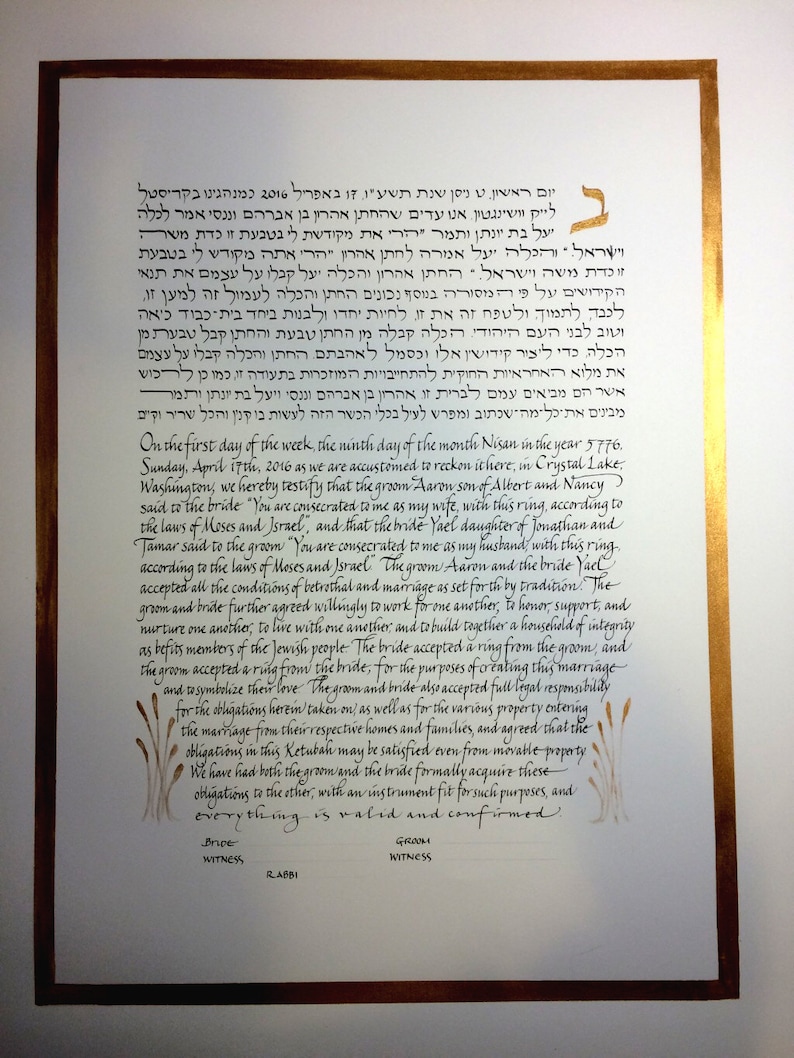 ב יום ראשון, ט ניסן שנת תשע״ו, 17 באפריל 2016 כמנהגינו בקריסטל
לייק וושינגטון. אנו עדים שהחתן אהרון בן אברהם וננסי אמר לכלה
יעל בת יונתן ותמר ״הרי את מקודשת לי בטבעת זו כדת משה
וישראל.״ והכלה יעל אמרה לחתן אהרון ״הרי אתה מקודש לי בטבעת
זו כדת משה וישראל.״ החתן אהרון והכלה יעל קבלו על עצמם את תנאי
הקידושים על פי המסורה בנוסף נכונים החתן והכלה לעמול זה למען זו,
לכבד, לתמוך, ולטפח זה את זו, לחיות יחדו ולבנות ביחד בית־כבוד כיאה
וטוב לבני העם היהודי. הכלה קבלה מן החתן טבעת והחתן קבל טבעת מן
הכלה, כדי ליצור קידושין אלו וכסמל לאהבתם. החתן והכלה קבלו על עצמם
את מלוא האחראיות החוקית להתחייבויות המוזכרות בתעודה זו, כמו כן לרכוש
אשר הם מביאים עמם לברית זו. אהרון בן אברהם וננסי ויעל בת יונתן ותמר
מבינים את־כל־מה־שכתוב ומפרש לעיל בכלי הכשר הזה לעשות בו קנין והכל שריר וקים
On the first day of the week, the ninth day of the month Nisan in the year 5776,
Sunday, April 17th, 2016 as we are accustomed to reckon it here, in Crystal Lake,
Washington, we hereby testify that the groom Aaron son of Albert and Nancy
said to the bride "You are consecrated to me as my wife, with this ring, according to
the laws of Moses and Israel", and that the bride Yael daughter of Jonathan and
Tamar said to the groom "You are consecrated to me as my husband, with this ring,
according to the laws of Moses and Israel." The groom Aaron and the bride Yael
accepted all the conditions of betrothal and marriage as set forth by tradition. The
groom and bride further agreed willingly to work for one another, to honor, support, and
nurture one another, to live with one another, and to build together a household of integrity
as befits members of the Jewish people. The bride accepted a ring from the groom, and
the groom accepted a ring from the bride, for the purposes of creating this marriage
and to symbolize their love. The groom and bride also accepted full legal responsibility
for the obligations herein taken on, as well as for the various property entering
the marriage from their respective homes and families, and agreed that the
obligations in this Ketubah may be satisfied even from movable property.
We have had both the groom and the bride formally acquire these
obligations to the other, with an instrument fit for such purposes, and
everything is valid and confirmed.
BRIDE GROOM
WITNESS WITNESS
RABBI